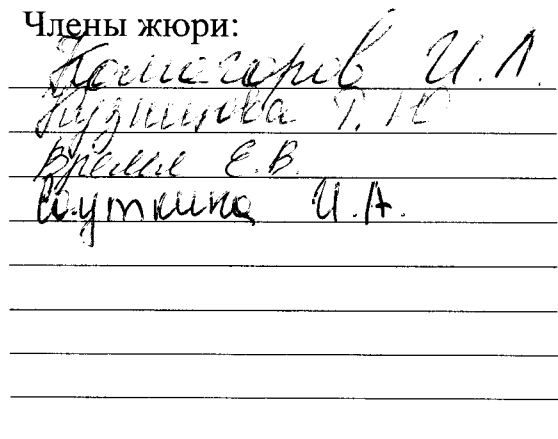 Члены жюри:
Комогоров И.Л.
Кузнецова Т.Ю
Время Е.В.
Шуткина И.А.